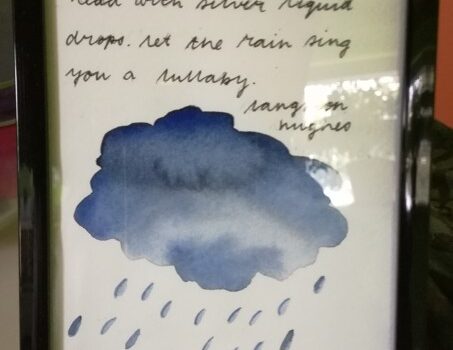 head with silver liquid
drops. let the rain sing
you a lullaby.
langston
hughes